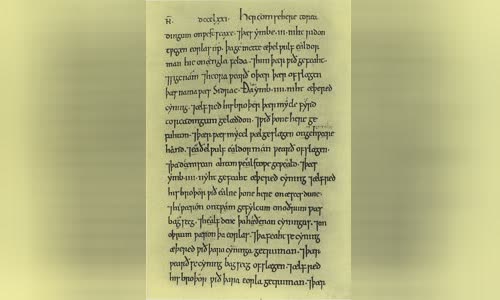 N̄. DCCCLXXI. Her com se here to rea
dingum on westseaxe. ⁊þæs ymbe .iii. niht ridon
twegen eorlas up. þa gemette æþelwulf ealdor
man hie on engla felda. ⁊him þær wið gefeaht.
⁊sige nam. ⁊heora wearð oþer þær ofslægen
þæs nama wæs Sidrac. Ða ymb .iiii. niht æþered
cyning. ⁊ælfred his broþer þær mycle fyrd
to readingum gelæddon. ⁊wið þone here ge
fuhton. ⁊þær wæs mycel wælgeslægen on gehwæþere
hand. ⁊eaþelwulf ealdorman wearð ofslægen.
⁊þa deniscan ahton wælstowe geweald. ⁊þæs
ymb .iiii. niht gefeaht æþered cyning ⁊ælfred
his broþor wið ealne þone here on æscesdune.
⁊hi wæron on twam gefylcum on oðrum wæs
bagsecg. ⁊healfdene þa hæðenan cyningas. ⁊on
oþrum wæron þa eorlas. ⁊þa feaht se cyning
æþered wið þara cyninga getruman. ⁊þær
wearð se cyning bagsecg ofslægen ⁊ælfred
his broþor wið þara eorla getruman. ⁊þær